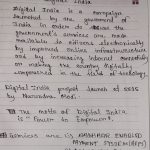 Digital India
Digital India is a campaign
launched by the government of
India in order to the
government's services are made
available to citizens electronically
by improved online infrastructure
and by increasing internet connectivity
or making the country digitally
empowered in the field of technology.
Digital India project launch of 2015
by Narendra Modi.
The motto of Digital India
is "Power to Empower".
Services are is AADHAAR ENABLED
PAYMENT SYSTEM (AEPS)